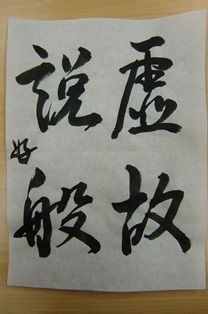 虚故
説般
好